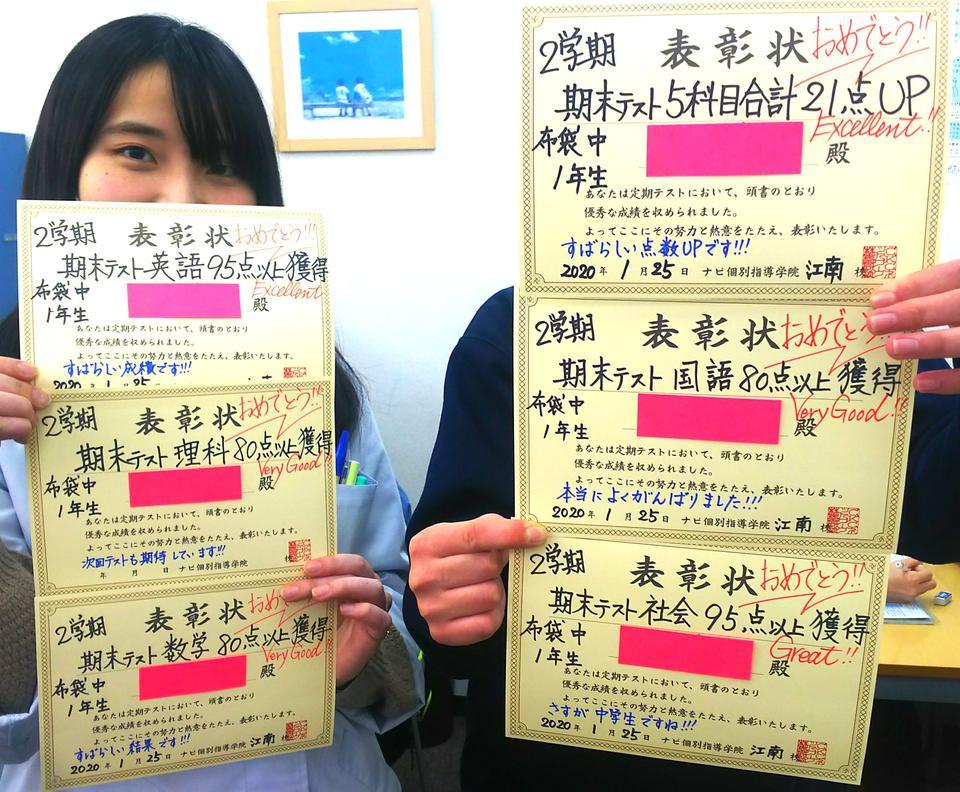 2学期 表彰状 おめでとう!!
期末テスト英語95点以上獲得
Excellent
布袋中
1年生
殿
あなたは定期テストにおいて、頭書のとおり
優秀な成績を収められました。
よってここにその努力と熱意をたたえ、表彰いたします。
すばらしい成績です!!!
2020 1 25
2学期 表彰状 おめでとう!!
期末テスト理科80点以上獲得
Very Good!!
布袋中
1年生
殿
あなたは定期テストにおいて、頭書のとおり
優秀な成績を収められました。
よってここにその努力と熱意をたたえ、表彰いたします。
次回テストも期待しています!!!
年 月 日 ナビ個別指導学院
2学期 表彰状 おめ
期末テスト数学80点以上獲得
Very Good!!
布袋中
1年生
殿
あなたは定期テストにおいて、頭書のとおり
優秀な成績を収められました。
よってここにその努力と熱意をたたえ、表彰いたします。
すばらしい結果です!!!
2020年 1月25日 ナビ個別指導学院 江南 校
2学期 表彰状 おめでとう!!
期末テスト5科目合計21点UP
Excellent!!
布袋中
1年生
殿
あなたは定期テストにおいて、頭書のとおり
優秀な成績を収められました。
よってここにその努力と熱意をたたえ、表彰いたします。
すばらしい点数UPです!!!
2020年 1月25日 ナビ個別指導学院 江南 校
2学期 表彰状 おめでとう
期末テスト国語80点以上獲得
Very Good!!
布袋中
1年生
殿
あなたは定期テストにおいて、頭書のとおり
優秀な成績を収められました。
よってここにその努力と熱意をたたえ、表彰いたします。
本当によくがんばりました!!!
2020年 1月25日 ナビ個別指導学院 江南 校
2学期 表彰状 おめでとう!!
期末テスト社会95点以上獲得
Great!!
布袋中
1年生
殿
あなたは定期テストにおいて、頭書のとおり
優秀な成績を収められました。
よってここにその努力と熱意をたたえ、表彰いたします。
さすが中学生ですね!!!
2020年 1月25日 ナビ個別指導学院 江南 校